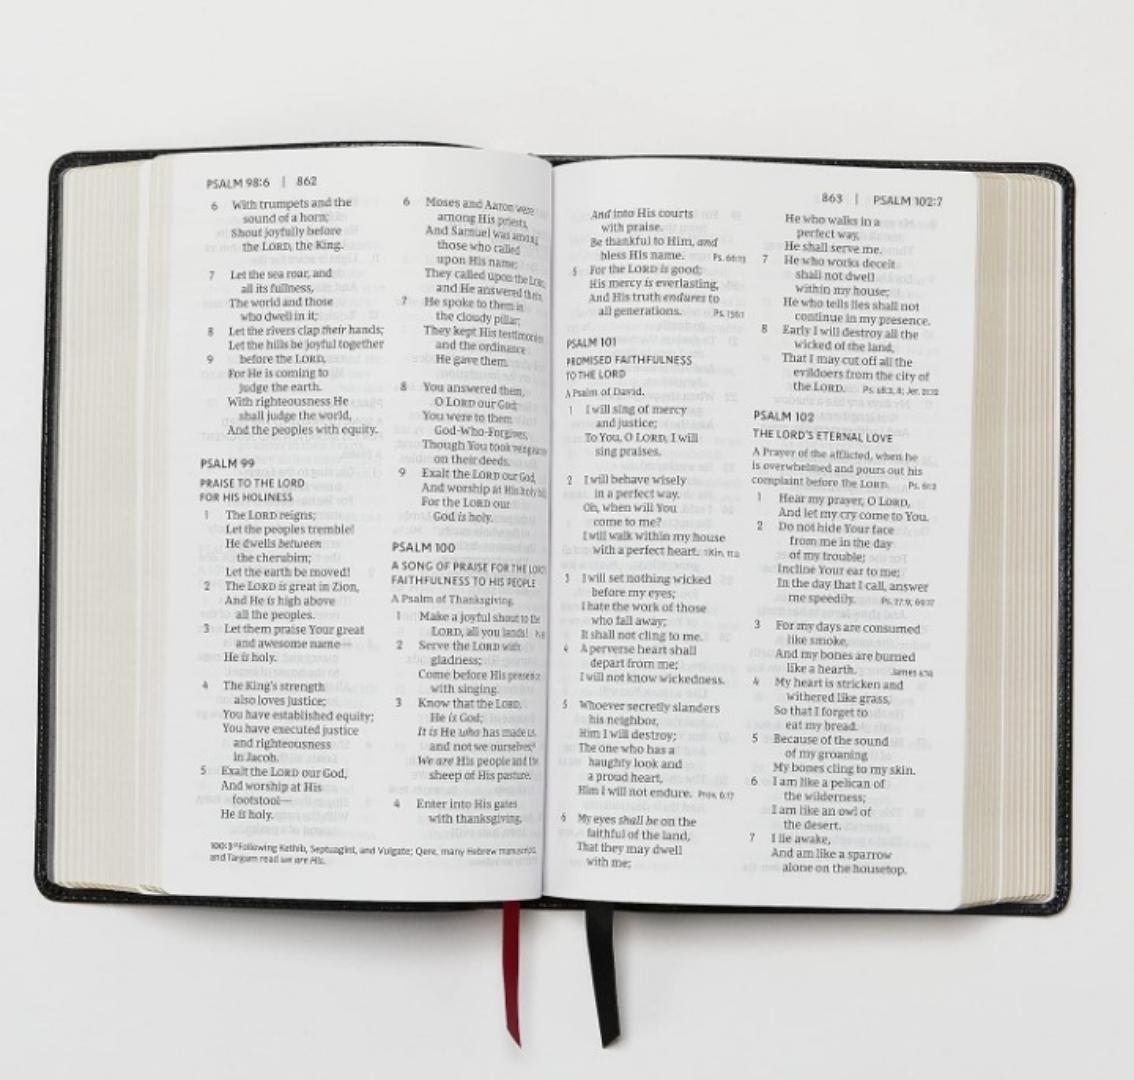 PSALM 98:6 | 862
6 With trumpets and the
sound of a horn;
Shout joyfully before
the LORD, the King.
7 Let the sea roar, and
all its fullness,
The world and those
who dwell in it;
8 Let the rivers clap their hands;
Let the hills be joyful together
9 before the LORD,
For He is coming to
judge the earth.
With righteousness He
shall judge the world,
And the peoples with equity.
PSALM 99
PRAISE TO THE LORD
FOR HIS HOLINESS
1 The LORD reigns;
Let the peoples tremble!
He dwells between
the cherubim;
Let the earth be moved!
2 The LORD is great in Zion,
And He is high above
all the peoples.
3 Let them praise Your great
and awesome name—
He is holy.
4 The King's strength
also loves justice;
You have established equity;
You have executed justice
and righteousness
in Jacob.
5 Exalt the LORD our God,
And worship at His
footstool—
He is holy.
6 Moses and Aaron were
among His priests,
And Samuel was among
those who called
upon His name;
They called upon the LORD,
and He answered them.
7 He spoke to them in
the cloudy pillar;
They kept His testimonies
and the ordinance
He gave them.
8 You answered them,
O LORD our God;
You were to them
God-Who-Forgives,
Though You took vengeance
on their deeds.
9 Exalt the LORD our God,
And worship at His holy hill;
For the LORD our
God is holy.
PSALM 100
A SONG OF PRAISE FOR THE LORD'S
FAITHFULNESS TO HIS PEOPLE
A Psalm of Thanksgiving.
1 Make a joyful shout to the
LORD, all you lands!
2 Serve the LORD with
gladness;
Come before His presence
with singing.
3 Know that the LORD,
He is God;
It is He who has made us,
and not we ourselves;a
We are His people and the
sheep of His pasture.
4 Enter into His gates
with thanksgiving,
100:3 a Following Kethib, Septuagint, and Vulgate; Qere, many Hebrew manuscripts,
and Targum read we are His.
863 | PSALM 102:7
And into His courts
with praise.
Be thankful to Him, and
bless His name. Ps. 66:13
5 For the LORD is good;
His mercy is everlasting,
And His truth endures to
all generations. Ps. 136:1
PSALM 101
PROMISED FAITHFULNESS
TO THE LORD
A Psalm of David.
1 I will sing of mercy
and justice;
To You, O LORD, I will
sing praises.
2 I will behave wisely
in a perfect way.
Oh, when will You
come to me?
I will walk within my house
with a perfect heart. 1 Kin. 11:4
3 I will set nothing wicked
before my eyes;
I hate the work of those
who fall away;
It shall not cling to me.
4 A perverse heart shall
depart from me;
I will not know wickedness.
5 Whoever secretly slanders
his neighbor,
Him I will destroy;
The one who has a
haughty look and
a proud heart,
Him I will not endure. Prov. 6:17
6 My eyes shall be on the
faithful of the land,
That they may dwell
with me;
He who walks in a
perfect way,
He shall serve me.
7 He who works deceit
shall not dwell
within my house;
He who tells lies shall not
continue in my presence.
8 Early I will destroy all the
wicked of the land,
That I may cut off all the
evildoers from the city of
the LORD. Ps. 48:2, 8; Jer. 21:12
PSALM 102
THE LORD'S ETERNAL LOVE
A Prayer of the afflicted, when he
is overwhelmed and pours out his
complaint before the LORD. Ps. 61:2
1 Hear my prayer, O LORD,
And let my cry come to You.
2 Do not hide Your face
from me in the day
of my trouble;
Incline Your ear to me;
In the day that I call, answer
me speedily. Ps. 27:9; 69:17
3 For my days are consumed
like smoke,
And my bones are burned
like a hearth. James 4:14
4 My heart is stricken and
withered like grass,
So that I forget to
eat my bread.
5 Because of the sound
of my groaning
My bones cling to my skin.
6 I am like a pelican of
the wilderness;
I am like an owl of
the desert.
7 I lie awake,
And am like a sparrow
alone on the housetop.